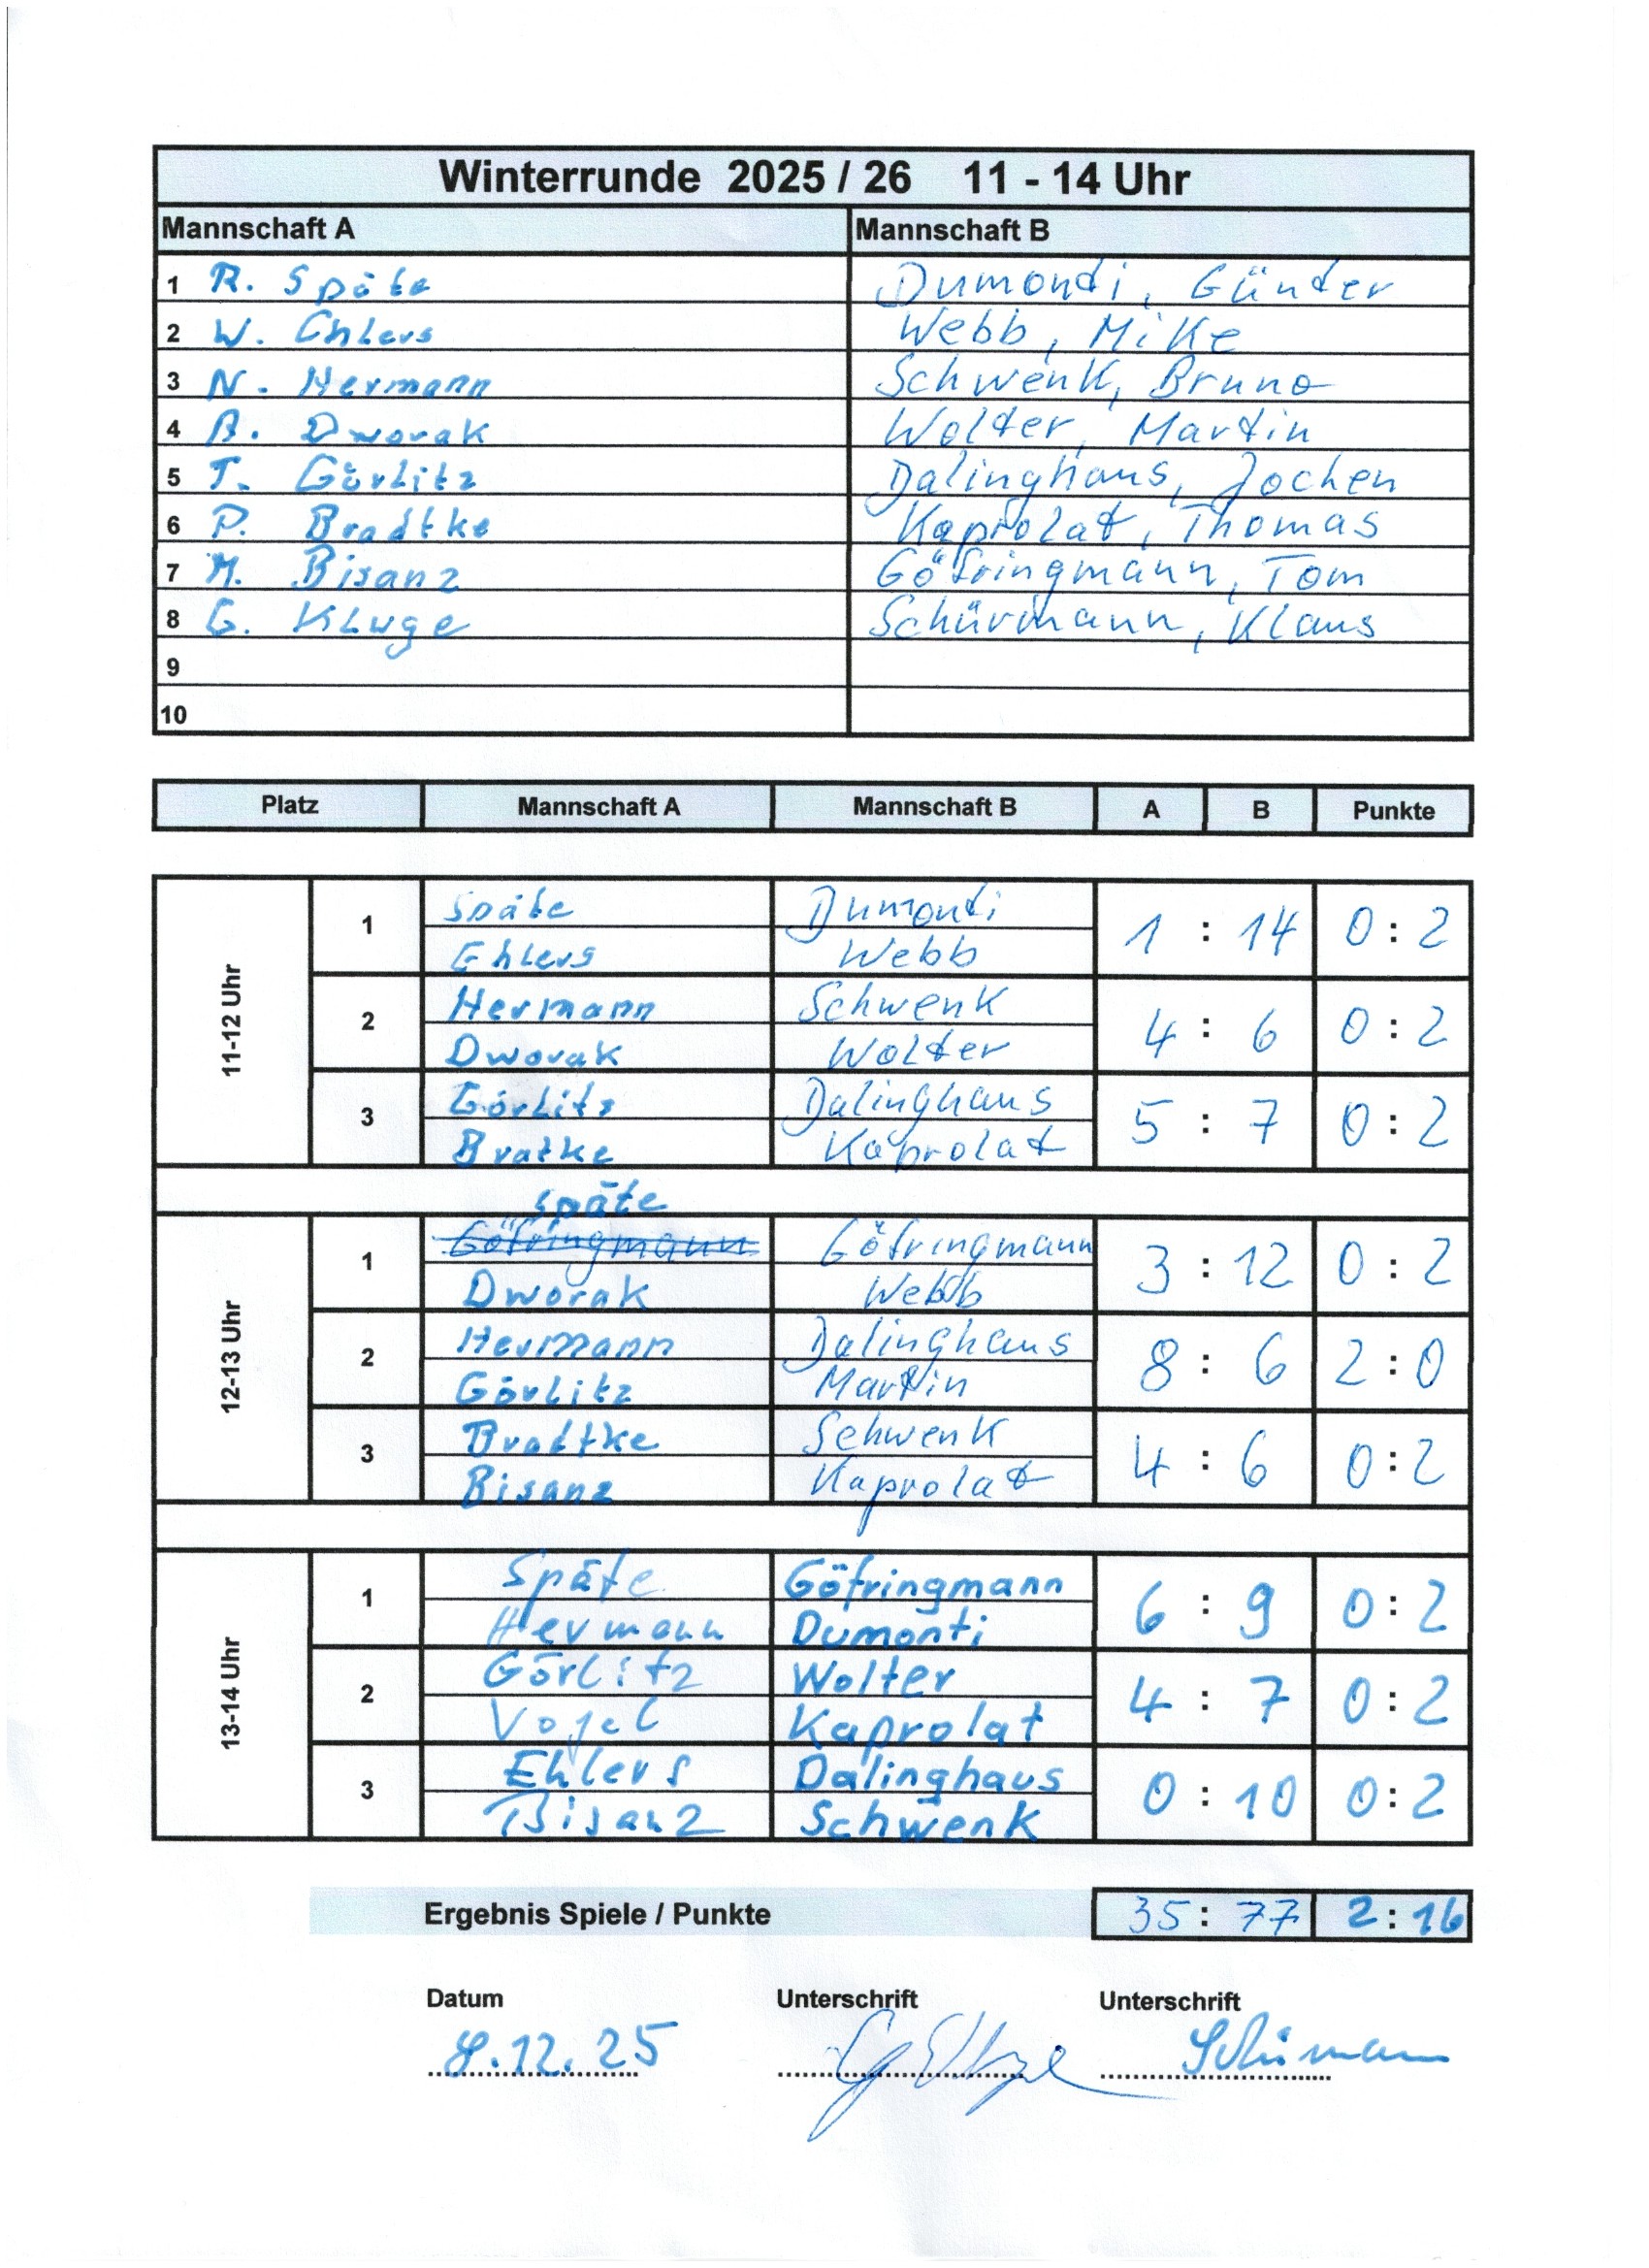 Winterrunde 2025 / 26 11 - 14 Uhr
Mannschaft A Mannschaft B
1 R. Späte Dumonti, Günter
2 W. Ehlers Webb, Mike
3 N. Hermann Schwenk, Bruno
4 A. Dworak Wolter, Martin
5 T. Görlitz Dalinghaus, Jochen
6 P. Bradtke Kaprolat, Thomas
7 M. Bisanz Göfringmann, Tom
8 G. Kluge Schürmann, Klaus
9
10
Platz Mannschaft A Mannschaft B A B Punkte
11-12 Uhr
1 Späte Dumonti 1 : 14 0 : 2
Ehlers Webb
2 Hermann Schwenk 4 : 6 0 : 2
Dworak Wolter
3 Görlitz Dalinghaus 5 : 7 0 : 2
Bratke Kaprolat
Späte
12-13 Uhr
1 Göfringmann Göfringmann 3 : 12 0 : 2
Dworak Webb
2 Hermann Dalinghaus 8 : 6 2 : 0
Görlitz Martin
3 Bradtke Schwenk 4 : 6 0 : 2
Bisanz Kaprolat
13-14 Uhr
1 Späte Göfringmann 6 : 9 0 : 2
Hermann Dumonti
2 Görlitz Wolter 4 : 7 0 : 2
Vogel Kaprolat
3 Ehlers Dalinghaus 0 : 10 0 : 2
Bisanz Schwenk
Ergebnis Spiele / Punkte 35 : 77 2 : 16
Datum Unterschrift Unterschrift
8.12.25 Schürmann